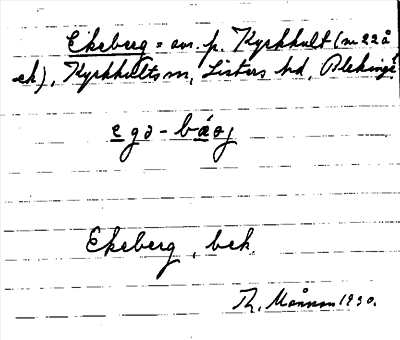 Ekeberg = av. p. Kyrkhult (m 22 å
ek), Kyrkhults sn, Listers hd, Blekinge
egə - báəj
Ekeberg, bek.
Th. Månsson 1930.